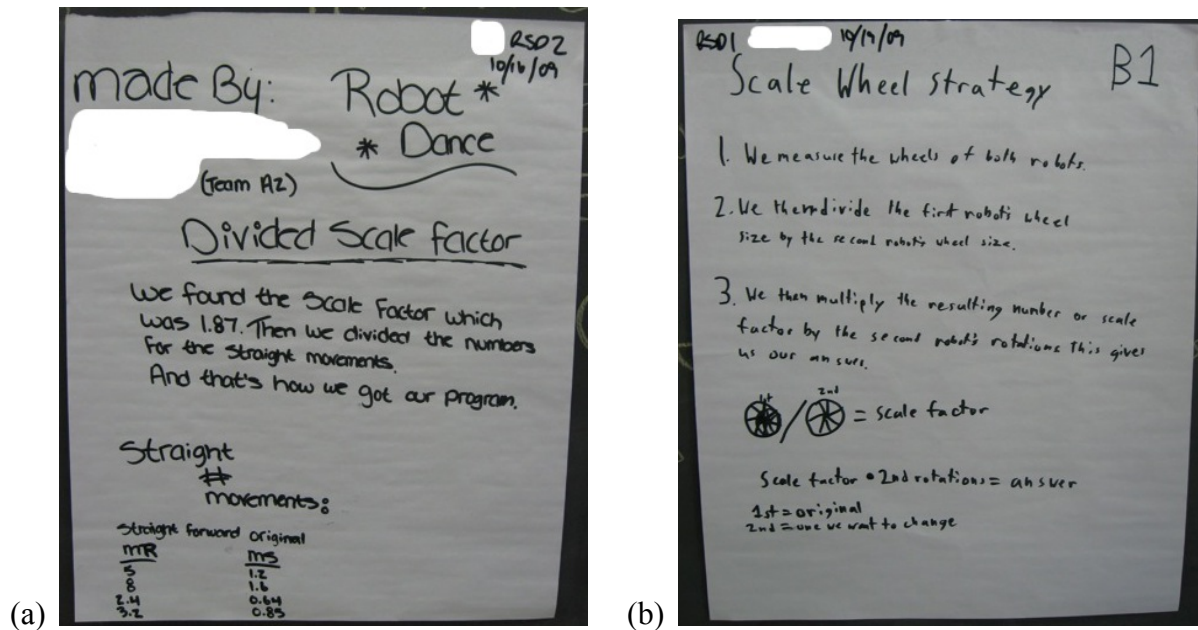 RSD2
10/16/09
made By:
Robot *
* Dance
(Team A2)
Divided Scale factor
We found the Scale Factor which
was 1.87. Then we divided the numbers
For the straight movements.
And that's how we got our program.
Straight
#
movements:
Straight forward original
MR MS
5 1.2
8 1.6
2.4 0.64
3.2 0.85
(a)
RSD1 10/19/09
B1
Scale Wheel Strategy
1. We measure the wheels of both robots.
2. We then divide the first robot's wheel
size by the second robot's wheel size.
3. We then multiply the resulting number or scale
factor by the second robot's rotations. This gives
us our answer.
1st / 2nd = scale factor
Scale factor • 2nd rotations = answer
1st = original
2nd = one we want to change
(b)